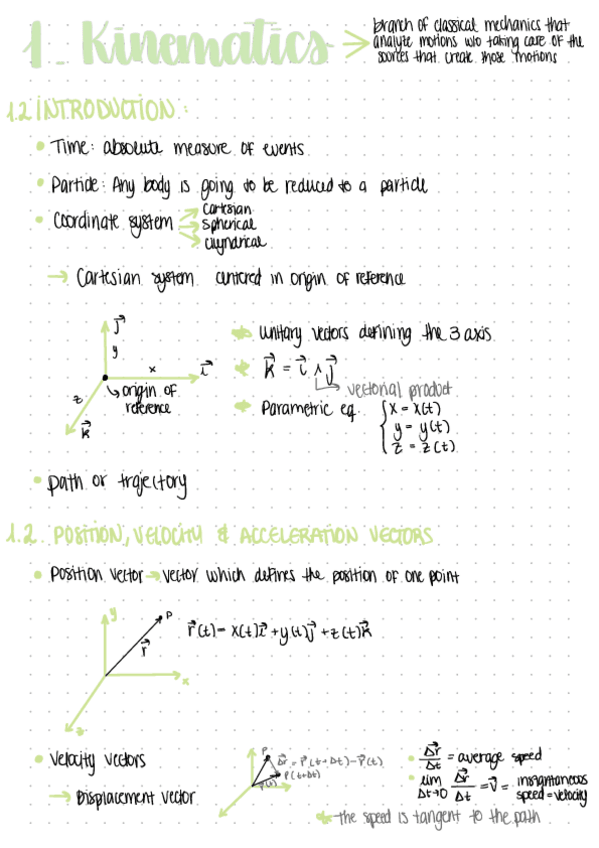 1. Kinematics → branch of classical mechanics that
analyte motions w/o taking care of the
sources that create those motions
1.2 INTRODUCTION:
• Time: absolute measure of events
• Particle: Any body is going to be reduced to a particle
• Coordinate system → Cartesian
→ Spherical
→ Cilyndrical
→ Cartesian system centered in origin of reference
j⃗
y
x
i⃗
origin of
reference
z
k⃗
Unitary vectors defining the 3 axis
k⃗ = i⃗ ∧ j⃗
vectorial product
Parametric eq. { x = x(t)
y = y(t)
z = z(t)
• path or trajectory
1.2. POSITION, VELOCITY & ACCELERATION VECTORS
• Position vector → vector which defines the position of one point
y
P
r⃗
x
z
r⃗(t) = x(t)i⃗ + y(t)j⃗ + z(t)k⃗
• Velocity vectors
→ Displacement vector
P
Δr⃗ = r⃗(t+Δt) - r⃗(t)
P(t+Δt)
r⃗(t)
• Δr⃗/Δt = average speed
• lim Δt→0 Δr⃗/Δt = v⃗ = instantaneous
speed = velocity
the speed is tangent to the path